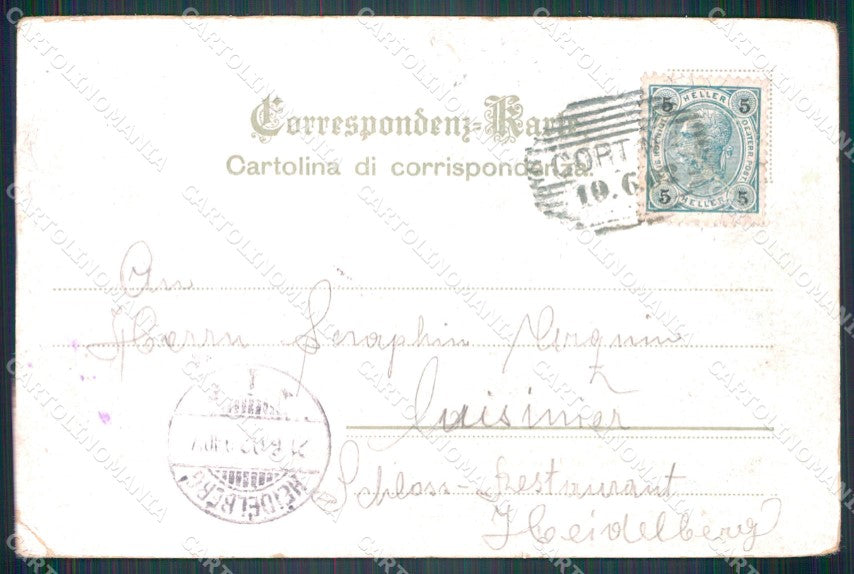 Correspondenz-Karte
Cartolina di corrispondenza
5 HELLER 5
5 HELLER 5
CORT
10.6.
An
Herrn Seraphin
Cuisinier
Schloss-Restaurant
Heidelberg
HEIDELBERG
1
CARTOLINOMANIA